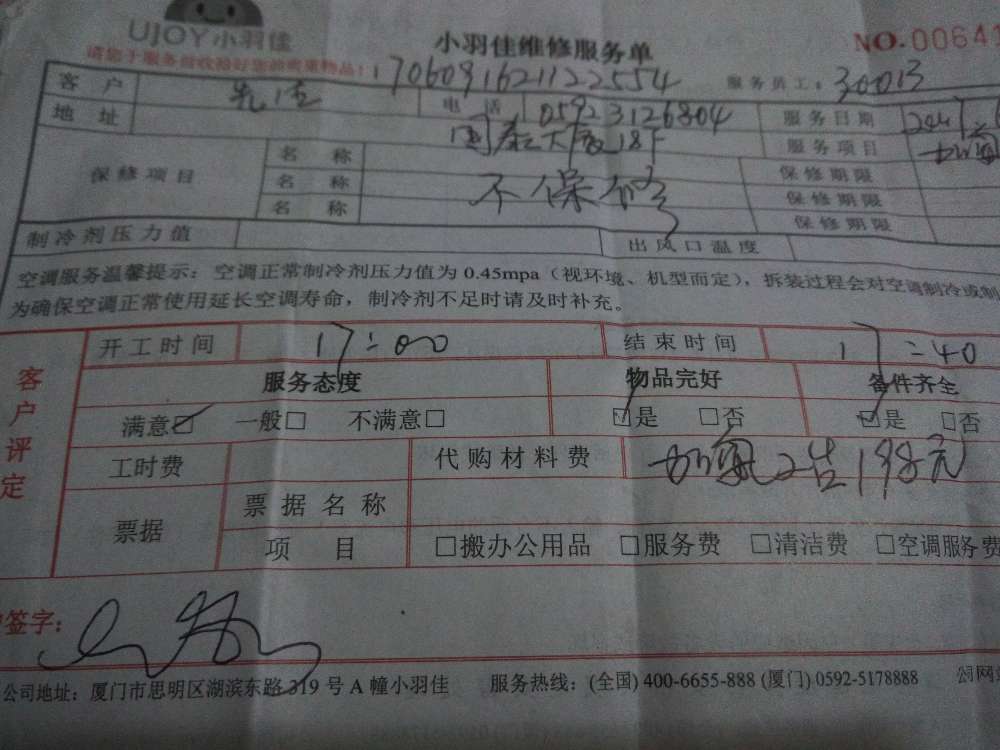 UJOY小羽佳
小羽佳维修服务单
NO.00641
请您于服务前收拾好您的贵重物品!
1706091621122554
服务员工: 30013
客 户
电 话 0592 3126804
服务日期
地 址 国泰大厦18F
服务项目
保修项目
名 称 保修期限
名 称 不保修 保修期限
名 称 保修期限
制冷剂压力值 出风口温度
空调服务温馨提示: 空调正常制冷剂压力值为 0.45mpa (视环境、机型而定), 拆装过程会对空调制冷或制
为确保空调正常使用延长空调寿命, 制冷剂不足时请及时补充。
客户评定
开工时间 17:00 结束时间 17:40
服务态度 物品完好 备件齐全
满意☑ 一般□ 不满意□ ☑是 □否 ☑是 □否
工时费 代购材料费 加氟2占198元
票据 票据名称
项 目 □搬办公用品 □服务费 □清洁费 □空调服务费
签字:
公司地址: 厦门市思明区湖滨东路 319 号 A 幢小羽佳 服务热线: (全国) 400-6655-888 (厦门) 0592-5178888